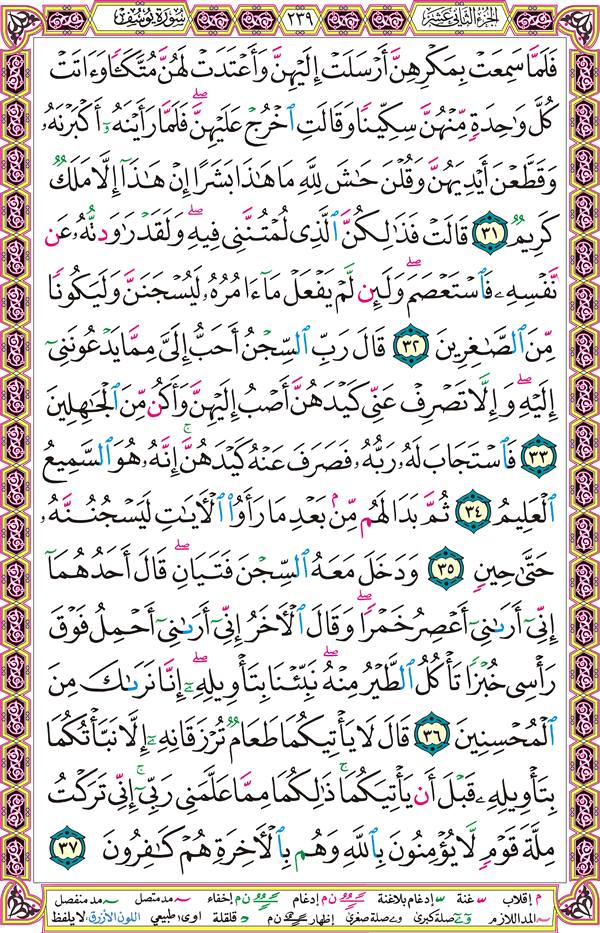 سورة يوسف ٢٣٩ الجزء الثاني عشر
فَلَمَّا سَمِعَتْ بِمَكْرِهِنَّ أَرْسَلَتْ إِلَيْهِنَّ وَأَعْتَدَتْ لَهُنَّ مُتَّكَـًٔا وَءَاتَتْ
كُلَّ وَٰحِدَةٍ مِّنْهُنَّ سِكِّينًا وَقَالَتِ ٱخْرُجْ عَلَيْهِنَّ ۖ فَلَمَّا رَأَيْنَهُۥٓ أَكْبَرْنَهُۥ
وَقَطَّعْنَ أَيْدِيَهُنَّ وَقُلْنَ حَٰشَ لِلَّهِ مَا هَٰذَا بَشَرًا إِنْ هَٰذَآ إِلَّا مَلَكٌ
كَرِيمٌ ٣١ قَالَتْ فَذَٰلِكُنَّ ٱلَّذِى لُمْتُنَّنِى فِيهِ ۖ وَلَقَدْ رَٰوَدتُّهُۥ عَن
نَّفْسِهِۦ فَٱسْتَعْصَمَ ۖ وَلَئِن لَّمْ يَفْعَلْ مَآ ءَامُرُهُۥ لَيُسْجَنَنَّ وَلَيَكُونًا
مِّنَ ٱلصَّٰغِرِينَ ٣٢ قَالَ رَبِّ ٱلسِّجْنُ أَحَبُّ إِلَىَّ مِمَّا يَدْعُونَنِىٓ
إِلَيْهِ ۖ وَإِلَّا تَصْرِفْ عَنِّى كَيْدَهُنَّ أَصْبُ إِلَيْهِنَّ وَأَكُن مِّنَ ٱلْجَٰهِلِينَ
٣٣ فَٱسْتَجَابَ لَهُۥ رَبُّهُۥ فَصَرَفَ عَنْهُ كَيْدَهُنَّ ۚ إِنَّهُۥ هُوَ ٱلسَّمِيعُ
ٱلْعَلِيمُ ٣٤ ثُمَّ بَدَا لَهُم مِّنۢ بَعْدِ مَا رَأَوُا۟ ٱلْءَايَٰتِ لَيَسْجُنُنَّهُۥ
حَتَّىٰ حِينٍ ٣٥ وَدَخَلَ مَعَهُ ٱلسِّجْنَ فَتَيَانِ ۖ قَالَ أَحَدُهُمَآ
إِنِّىٓ أَرَىٰنِىٓ أَعْصِرُ خَمْرًا ۖ وَقَالَ ٱلْءَاخَرُ إِنِّىٓ أَرَىٰنِىٓ أَحْمِلُ فَوْقَ
رَأْسِى خُبْزًا تَأْكُلُ ٱلطَّيْرُ مِنْهُ ۖ نَبِّئْنَا بِتَأْوِيلِهِۦٓ ۖ إِنَّا نَرَىٰكَ مِنَ
ٱلْمُحْسِنِينَ ٣٦ قَالَ لَا يَأْتِيكُمَا طَعَامٌ تُرْزَقَانِهِۦٓ إِلَّا نَبَّأْتُكُمَا
بِتَأْوِيلِهِۦ قَبْلَ أَن يَأْتِيَكُمَا ۚ ذَٰلِكُمَا مِمَّا عَلَّمَنِى رَبِّىٓ ۚ إِنِّى تَرَكْتُ
مِلَّةَ قَوْمٍ لَّا يُؤْمِنُونَ بِٱللَّهِ وَهُم بِٱلْءَاخِرَةِ هُمْ كَٰفِرُونَ ٣٧
م إقلاب غنة إدغام بلاغنة ن م إدغام ن م إخفاء مد متصل مد منفصل
المد اللازم صلة كبرى صلة صغرى إظهار ن م قلقلة اوى طبيعي اللون الأزرق: لا يلفظ